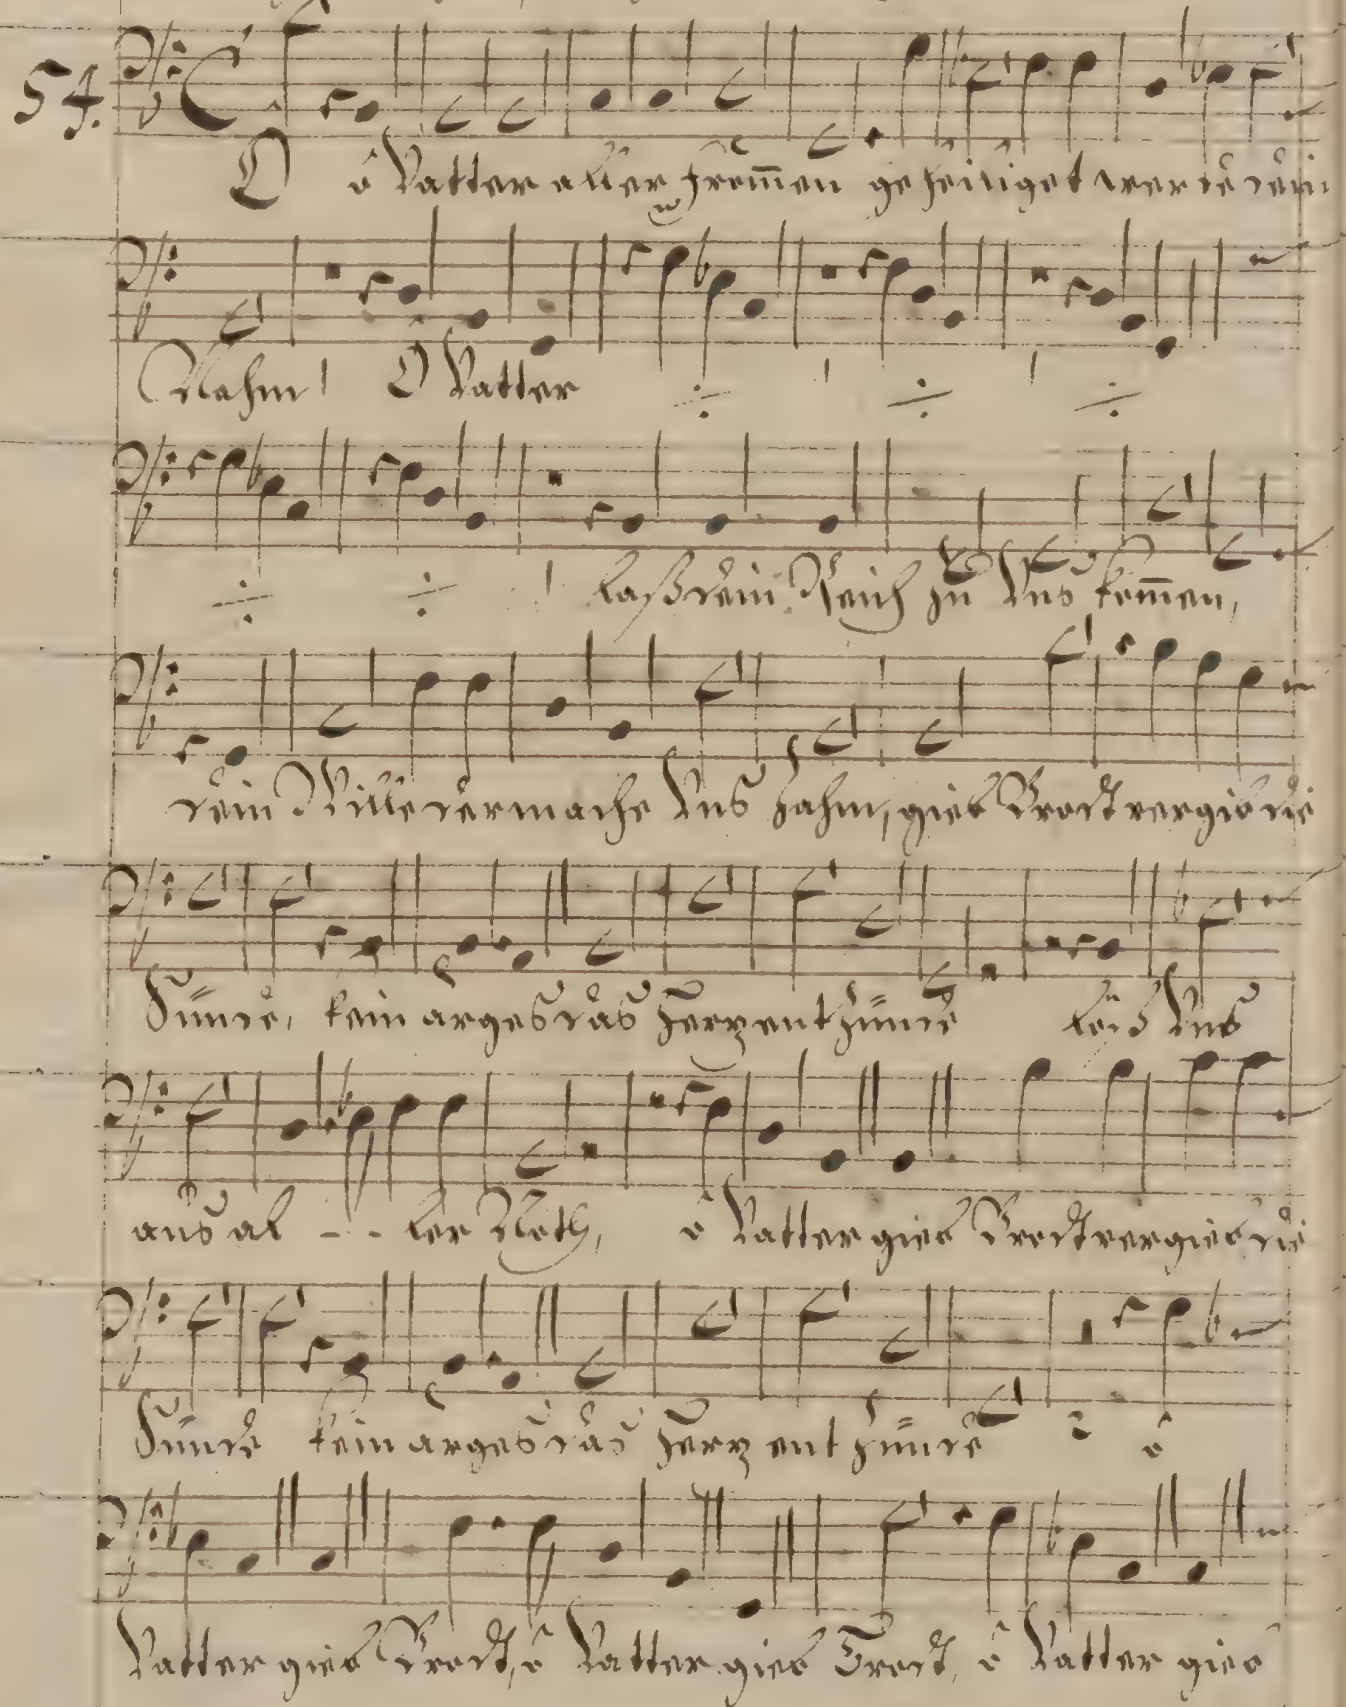 54.
O ô Vatter aller from̄en geheiliget werde dein
Nahm O Vatter ÷ ÷ ÷
÷ ÷ laß dein Reich zu Uns kom̄en,
dein Wille der mache Uns zahm, gieb Brodt vergieb die
Sünde, kein arges das Herz entzünde löß Uns
aus al - - ler Noth, ô Vatter gieb Brodt vergieb die
Sünde kein arges das Herz entzünde ô
Vatter gieb Brodt, ô Vatter gieb Brodt, ô Vatter gieb